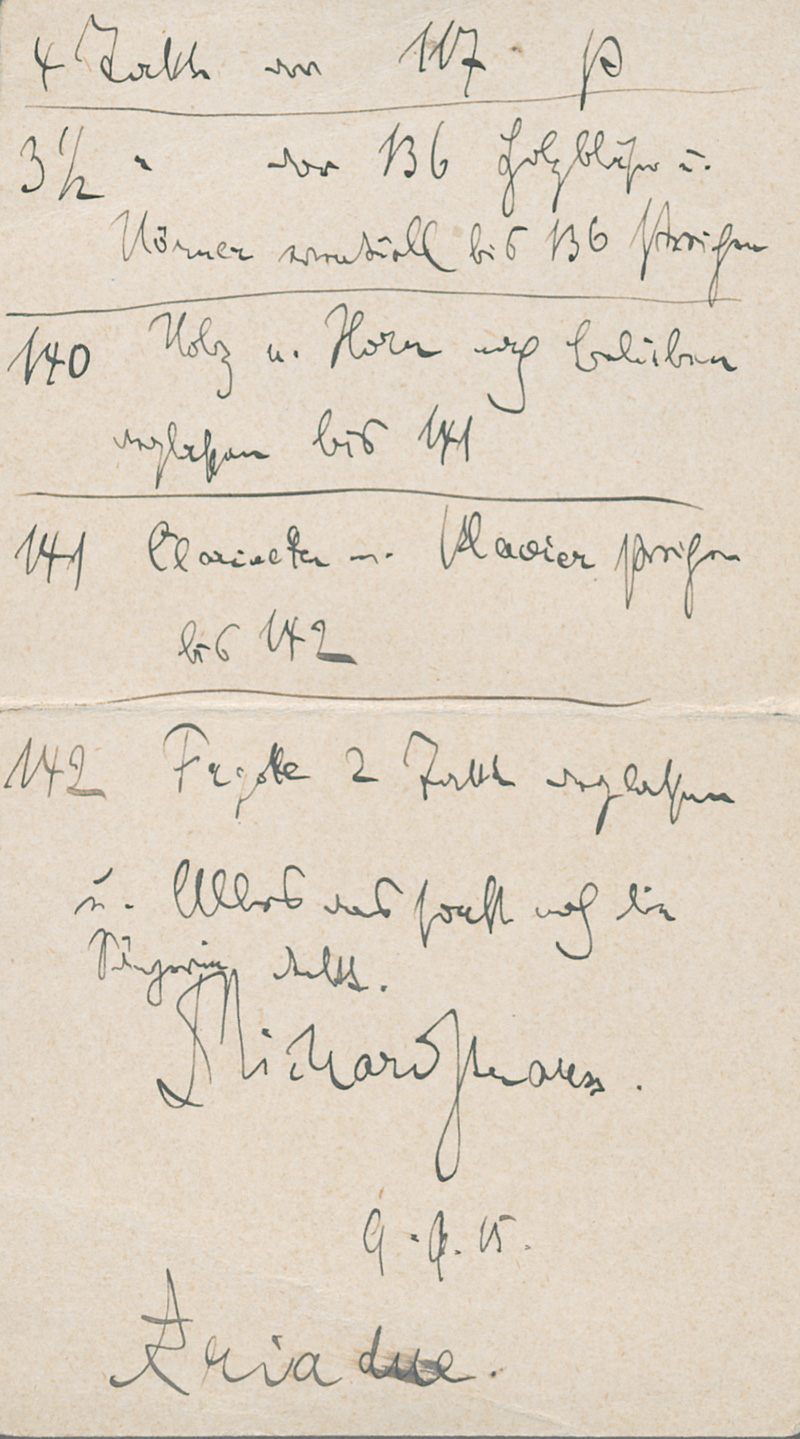 4 Takte vor 117 p
3 1/2 " vor 136 Holzbläser u.
Hörner eventuell bis 136 streichen
140 Holz u. Horn nach Belieben
weglassen bis 141
141 Clarinette u. Klavier streichen
bis 142
142 Fagotte 2 Takte weglassen
u. Alles was sonst noch die
Sängerin deckt.
Richard Strauss.
15.
Ariadne.